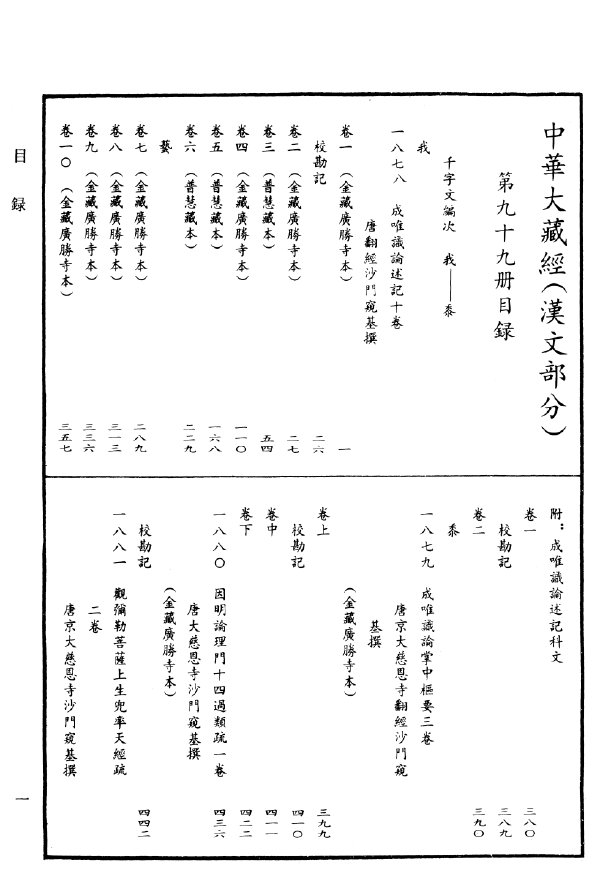 中華大藏經（漢文部分）
第九十九册目録
千字文編次　我——黍
我
一八七八　成唯識論述記十卷
唐翻經沙門窺基撰
卷一（金藏廣勝寺本）　一
校勘記　二六
卷二（金藏廣勝寺本）　二七
卷三（普慧藏本）　五四
卷四（金藏廣勝寺本）　一一〇
卷五（普慧藏本）　一六八
卷六（普慧藏本）　二二九
藝
卷七（金藏廣勝寺本）　二八九
卷八（金藏廣勝寺本）　三一三
卷九（金藏廣勝寺本）　三三六
卷一〇（金藏廣勝寺本）　三五七
附：成唯識論述記科文
卷一　三八〇
校勘記　三八九
卷二　三九〇
黍
一八七九　成唯識論掌中樞要三卷
唐京大慈恩寺翻經沙門窺
基撰
（金藏廣勝寺本）
卷上　三九九
校勘記　四一〇
卷中　四一一
卷下　四二二
一八八〇　因明論理門十四過類疏一卷　四三六
唐大慈恩寺沙門窺基撰
（金藏廣勝寺本）
校勘記　四四二
一八八一　觀彌勒菩薩上生兜率天經疏
二卷
唐京大慈恩寺沙門窺基撰
目録
一